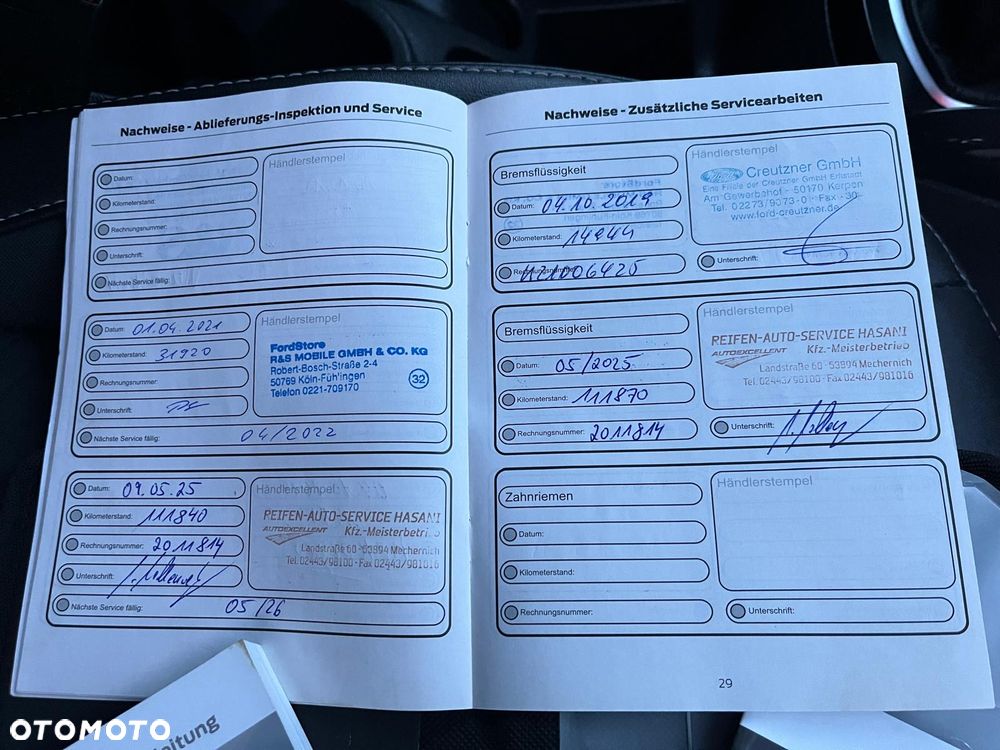 Nachweise - Ablieferungs-Inspektion und Service
Datum:
Händlerstempel
Kilometerstand:
Rechnungsnummer:
Unterschrift:
Nächste Service fällig:
Datum: 01.04.2021
Händlerstempel
Kilometerstand: 31920
FordStore
R&S MOBILE GMBH & CO. KG
Robert-Bosch-Straße 2-4
50769 Köln-Fühlingen
Telefon 0221-709170
32
Rechnungsnummer:
Unterschrift:
Nächste Service fällig: 04/2022
Datum: 09.05.25
Händlerstempel
Kilometerstand: 111840
REIFEN-AUTO-SERVICE HASANI
AUTOEXCELLENT Kfz.-Meisterbetrieb
Landstraße 60 - 53894 Mechernich
Tel. 02443/98100 - Fax 02443/981016
Rechnungsnummer: 2011814
Unterschrift:
Nächste Service fällig: 05/26
Nachweise - Zusätzliche Servicearbeiten
Bremsflüssigkeit
Händlerstempel
Ford Creutzner GmbH
Eine Filiale der Creutzner GmbH Erftstadt
Am Gewerbehof - 50170 Kerpen
Tel. 02273/9073-0 - Fax -30
www.ford-creutzner.de
Datum: 04.10.2019
Kilometerstand: 14944
Rechnungsnummer:
Unterschrift:
Bremsflüssigkeit
Händlerstempel
REIFEN-AUTO-SERVICE HASANI
AUTOEXCELLENT Kfz.-Meisterbetrieb
Landstraße 60 - 53894 Mechernich
Tel. 02443/98100 - Fax 02443/981016
Datum: 05/2025
Kilometerstand: 111870
Rechnungsnummer: 2011814
Unterschrift:
Zahnriemen
Händlerstempel
Datum:
Kilometerstand:
Rechnungsnummer:
Unterschrift:
29
eitung
OTOMOTO